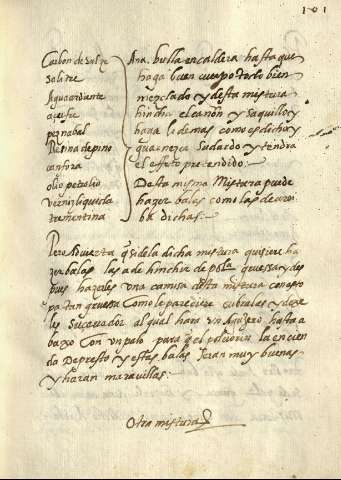 101
Carbon de salze
salitre
Aguardiente
açufre
peznabal
Resina de pino
canfora
olio petrolio
verniz liquida
trementina
Ana. bulla en caldera hasta que
haga buen cuerpo todo bien
mezclado y desta mistura
hincha el cañon y saquillo y
haga lo demas como es dicho y
guarnezca su dardo y tendra
el effeto pretendido.
Desta misma Mistura puede
hazer balas como las de arri
ba dichas.
Pero Advierta q̃ si de la dicha mistura quisiere ha
zer balas las a de hinchir de pol.ra gruesa y des
pues hazerles una camisa desta mistura con esto
pa tan gruesa Como le pareciere cubralas y dexe
les Su cevador al qual hara un Agujero hasta a
baxo Con un palo para q̃ el polvorin la encien
da De presto y estas balas Seran muy buenas
y haran maravillas:
Otra mistura